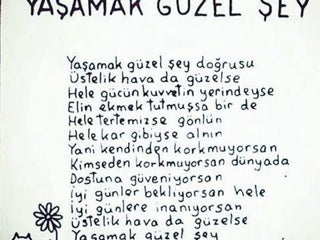 YAŞAMAK GÜZEL ŞEY
Yaşamak güzel şey doğrusu
Üstelik hava da güzelse
Hele gücün kuvvetin yerindeyse
Elin ekmek tutmuşsa bir de
Hele tertemizse gönlün
Hele kar gibiyse alnın
Yani kendinden korkmuyorsan
Kimseden korkmuyorsan dünyada
Dostuna güveniyorsan
İyi günler bekliyorsan hele
İyi günlere inanıyorsan
Üstelik hava da güzelse
Yaşamak güzel şey